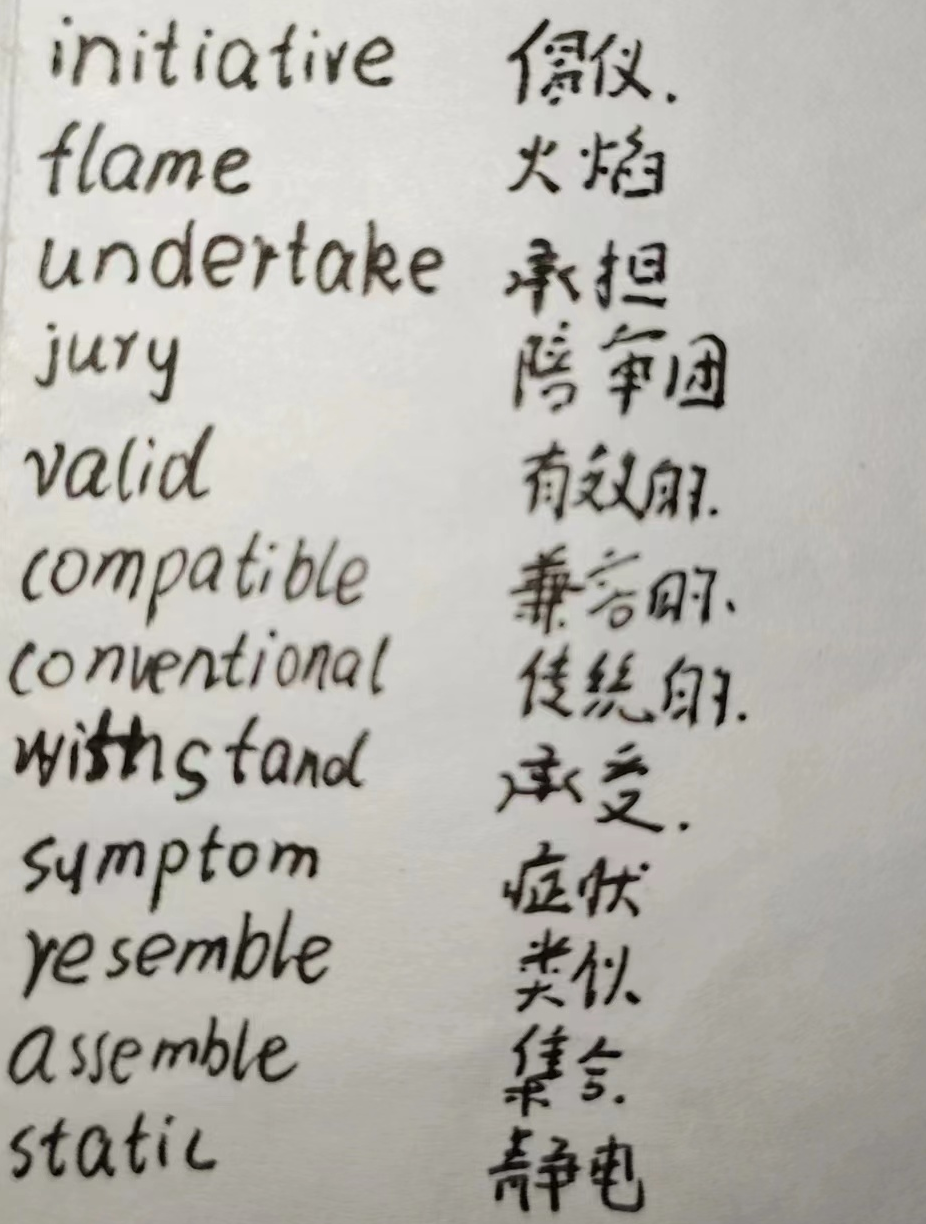 initiative 倡仪.
flame 火焰
undertake 承担
jury 陪审团
valid 有效的.
compatible 兼容的、
conventional 传统的.
withstand 承受.
symptom 症状
resemble 类似、
assemble 集合.
static 静电